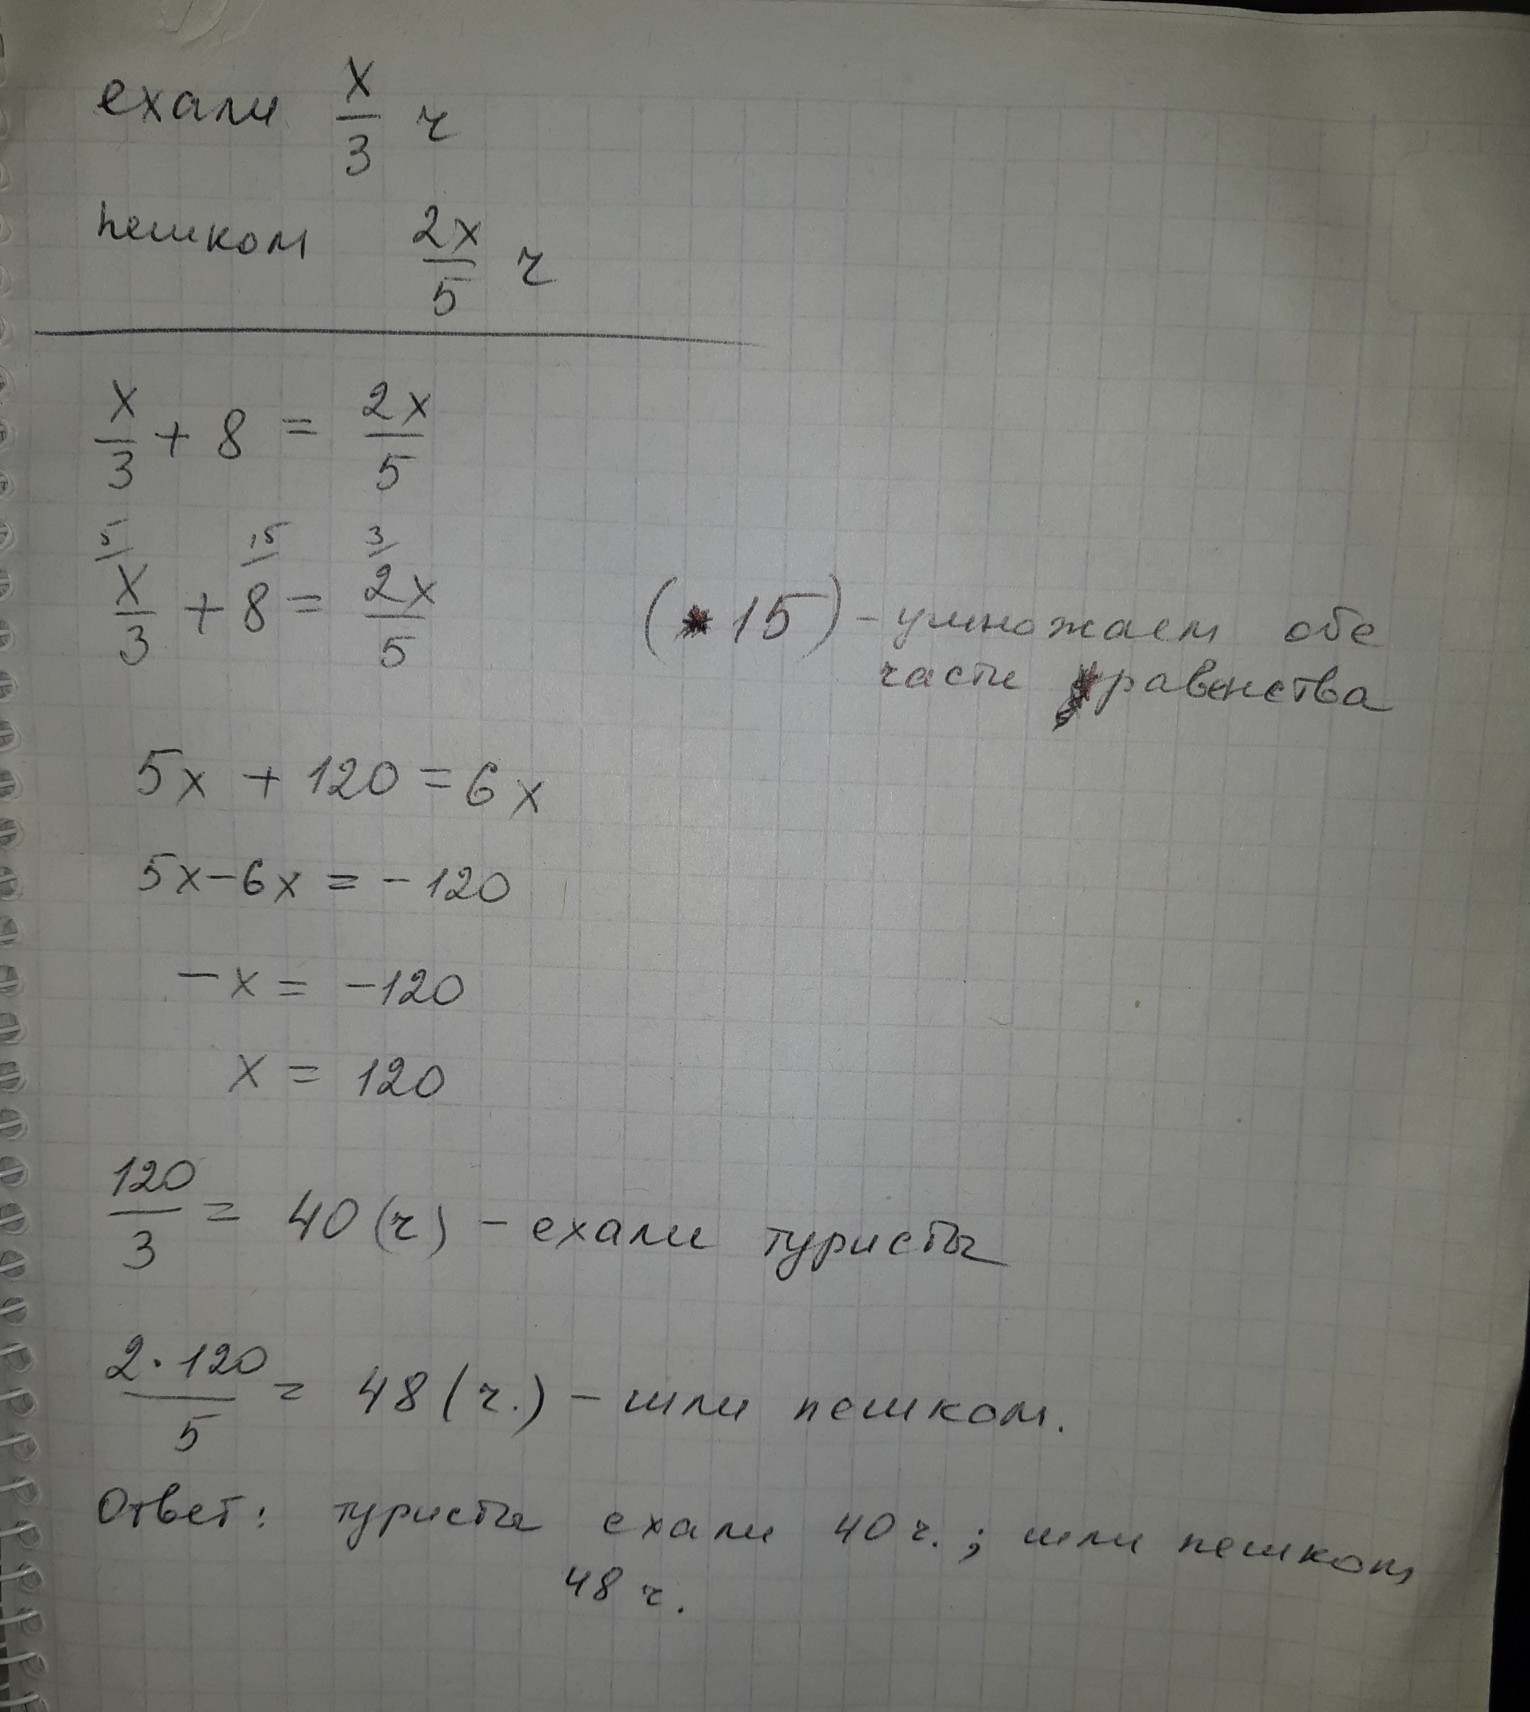 ехали x/3 ч
пешком 2x/5 ч
x/3 + 8 = 2x/5
5/ 15/ 3/
x/3 + 8 = 2x/5 (* 15) - умножаем обе
части равенства
5x + 120 = 6x
5x - 6x = - 120
- x = - 120
x = 120
120/3 = 40 (ч) - ехали туристы
2 · 120/5 = 48 (ч.) - шли пешком.
Ответ: туристы ехали 40 ч.; шли пешком
48 ч.